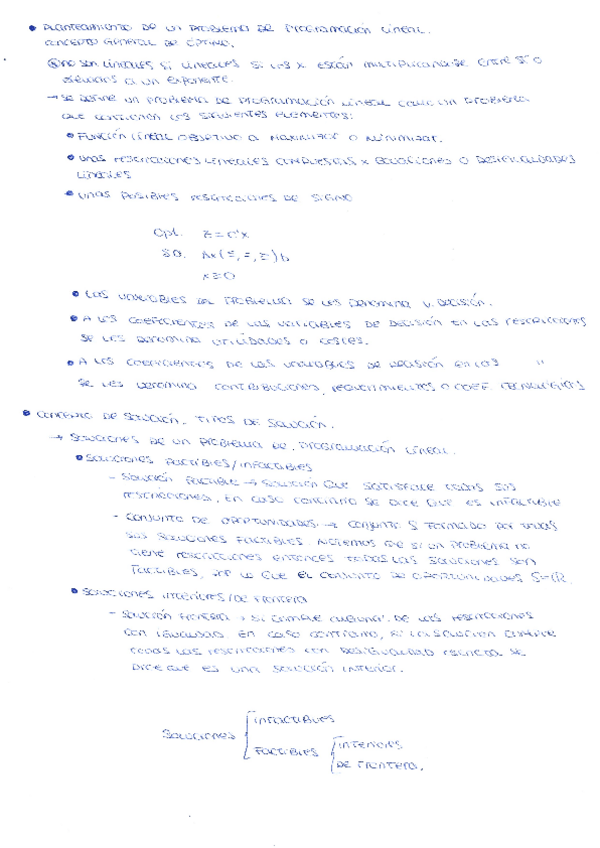 • PLANTEAMIENTO DE UN PROBLEMA DE PROGRAMACIÓN LINEAL.
CONCEPTO GENERAL DE ÓPTIMO.
NO SON LINEALES SI LINEALES SI LAS X ESTÁN MULTIPLICANDOSE ENTRE SÍ O
ELEVADAS A UN EXPONENTE.
→ SE DEFINE UN PROBLEMA DE PROGRAMACIÓN LINEAL COMO UN PROBLEMA
QUE CONTIENEN LOS SIGUIENTES ELEMENTOS:
• FUNCIÓN LINEAL OBJETIVO A MAXIMIZAR O MINIMIZAR.
• UNAS RESTRICCIONES LINEALES COMPUESTAS X ECUACIONES O DESIGUALDADES
LINEALES
• UNAS POSIBLES RESTRICCIONES DE SIGNO
Opt. Z = c'x
S.a. Ax (≤, =, ≥) b
x ≥ 0
• LAS VARIABLES DEL PROBLEMA SE LES DENOMINA V. DECISIÓN.
• A LOS COEFICIENTES DE LAS VARIABLES DE DECISIÓN EN LAS RESTRICCIONES
SE LES DENOMINA UTILIDADES O COSTES.
• A LOS COEFICIENTES DE LAS VARIABLES DE DECISIÓN EN LAS "
SE LES DENOMINA CONTRIBUCIONES, REQUERIMIENTOS O COEF. TECNOLÓGICOS
• CONCEPTO DE SOLUCIÓN. TIPOS DE SOLUCIÓN.
→ SOLUCIONES DE UN PROBLEMA DE PROGRAMACIÓN LINEAL.
• SOLUCIONES FACTIBLES/INFACTIBLES
- SOLUCIÓN FACTIBLE → SOLUCIÓN QUE SATISFACE TODAS SUS
RESTRICCIONES, EN CASO CONTRARIO SE DICE QUE ES INFACTIBLE
- CONJUNTO DE OPORTUNIDADES → CONJUNTO S FORMADO POR TODAS
SUS SOLUCIONES FACTIBLES. NOTEMOS QUE SI UN PROBLEMA NO
TIENE RESTRICCIONES ENTONCES TODAS LAS SOLUCIONES SON
FACTIBLES, POR LO QUE EL CONJUNTO DE OPORTUNIDADES S=ℝ.
• SOLUCIONES INTERIORES/DE FRONTERA
- SOLUCIÓN FRONTERA → SI CUMPLE ALGUNA DE LAS RESTRICCIONES
CON IGUALDAD. EN CASO CONTRARIO, SI LA SOLUCIÓN CUMPLE
TODAS LAS RESTRICCIONES CON DESIGUALDAD ESTRICTA SE
DICE QUE ES UNA SOLUCIÓN INTERIOR.
INFACTIBLES
SOLUCIONES
FACTIBLES
INTERIORES
DE FRONTERA.